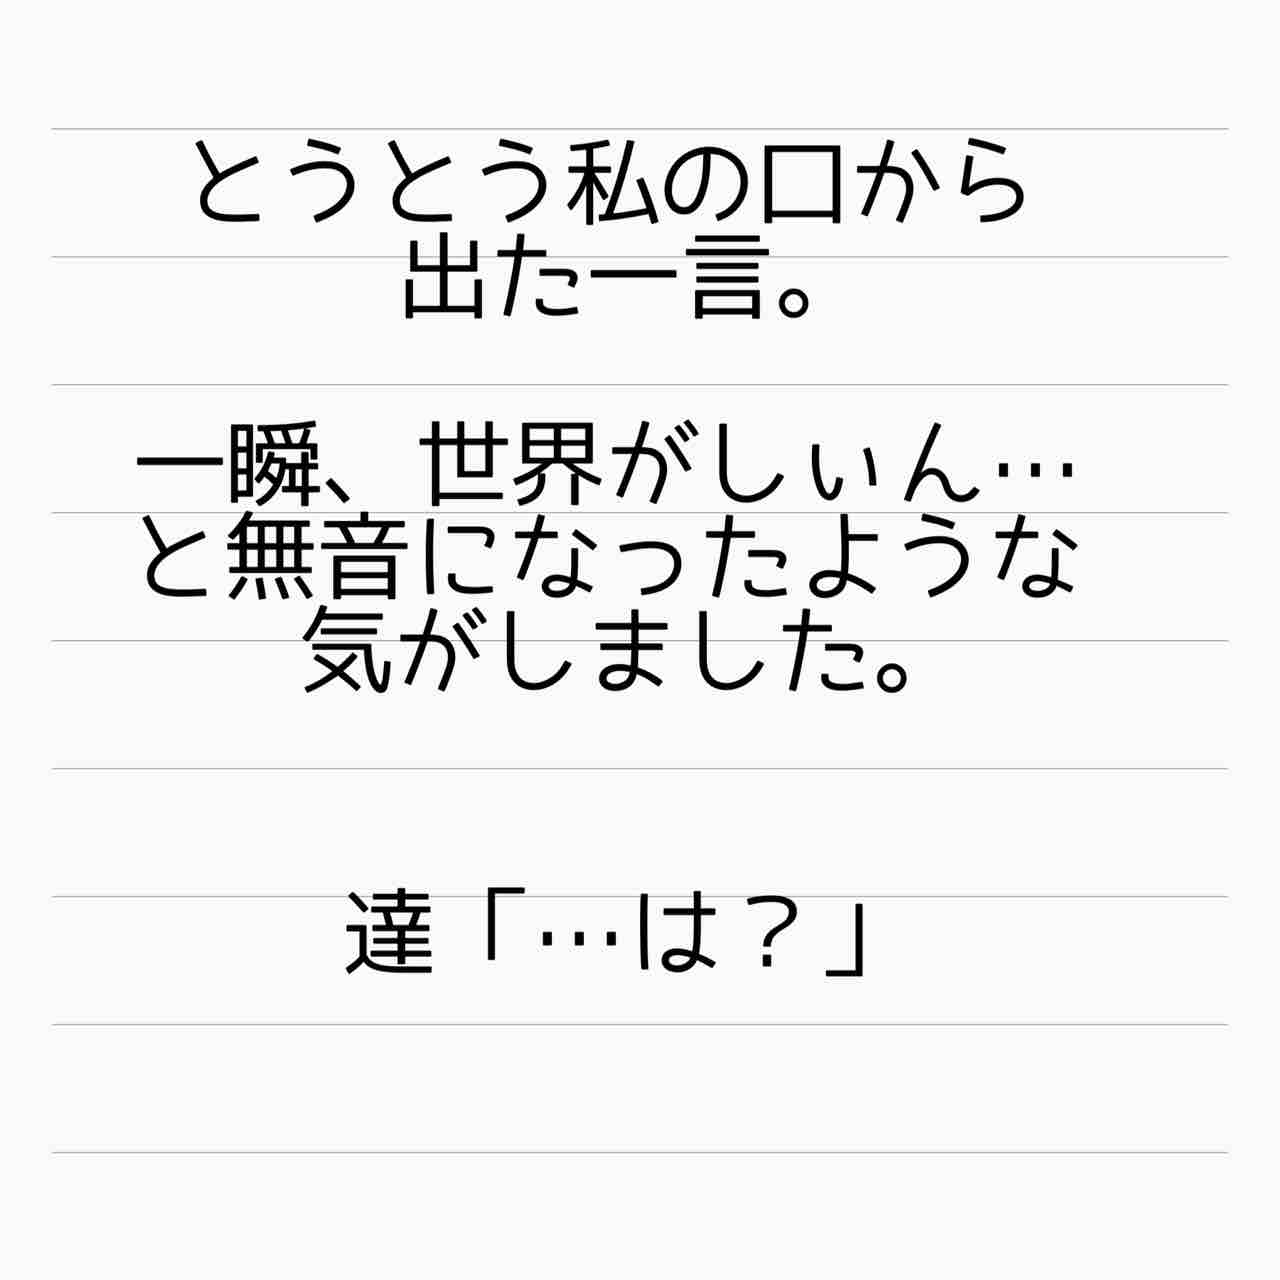 とうとう私の口から
出た一言。
一瞬、世界がしぃん…
と無音になったような
気がしました。
達「…は？」